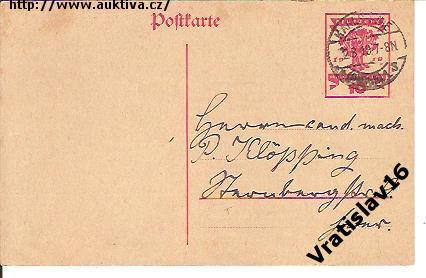 http://www.auktiva.cz/
Postkarte
7-8N
Herrn cand. mach.
P. Klöpping
Sternbergstr.
hier.
Vratislav16